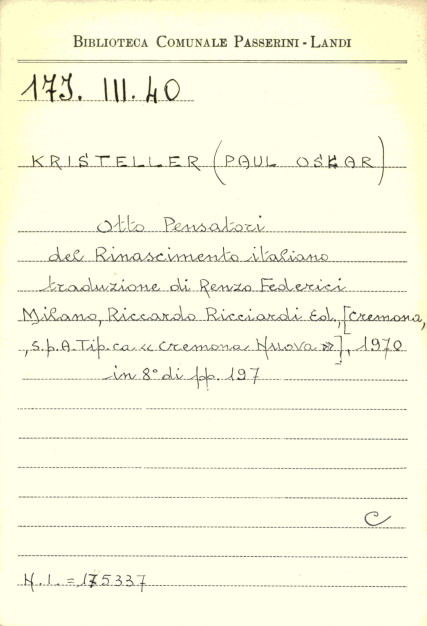 BIBLIOTECA COMUNALE PASSERINI - LANDI
17J. III. 40
KRISTELLER (PAUL OSKAR)
Otto Pensatori
del Rinascimento italiano
traduzione di Renzo Federici
Milano, Riccardo Ricciardi Ed., [Cremona,
, S.p.A. Tip.ca « Cremona Nuova »], 1970
in 8° di pp. 197
C
N.I. = 175337